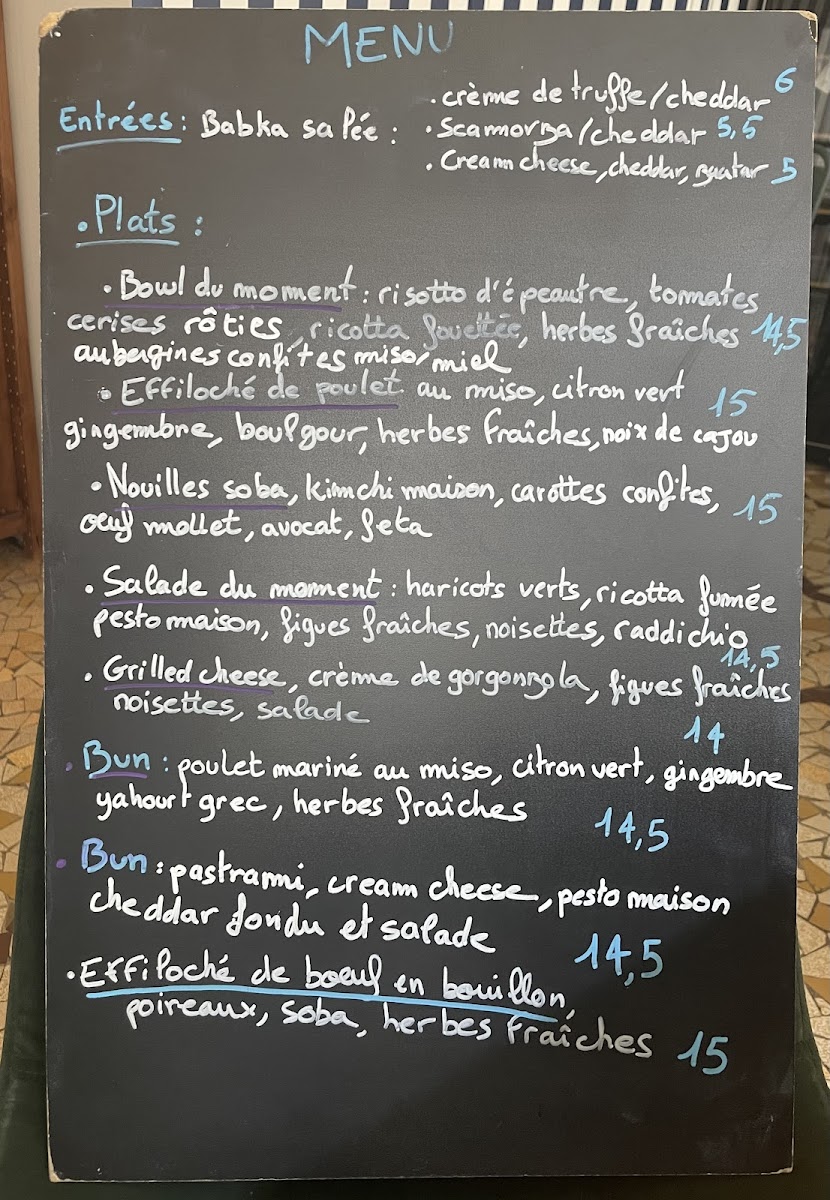 MENU
. crème de truffe/cheddar 6
Entrées : Babka salée : . Scamorza/cheddar 5,5
. Cream cheese, cheddar, zaatar 5
. Plats :
. Bowl du moment : risotto d'épeautre, tomates
cerises rôties, ricotta fouettée, herbes fraîches 14,5
aubergines confites miso/miel
. Effiloché de poulet au miso, citron vert 15
gingembre, boulgour, herbes fraîches, noix de cajou
. Nouilles soba, kimchi maison, carottes confites, 15
œuf mollet, avocat, feta
. Salade du moment : haricots verts, ricotta fumée
pesto maison, figues fraîches, noisettes, raddichio
14,5
. Grilled cheese, crème de gorgonzola, figues fraîches
noisettes, salade
14
. Bun : poulet mariné au miso, citron vert, gingembre
yahourt grec, herbes fraîches 14,5
. Bun : pastrami, cream cheese, pesto maison
cheddar fondu et salade 14,5
. Effiloché de boeuf en bouillon,
poireaux, soba, herbes fraîches 15